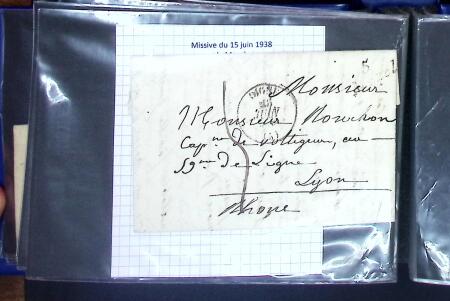 Missive du 15 juin 1938
Monsieur
Monsieur
Cap.ne de voltigeur, au
59me de Ligne
Lyon
Rhone